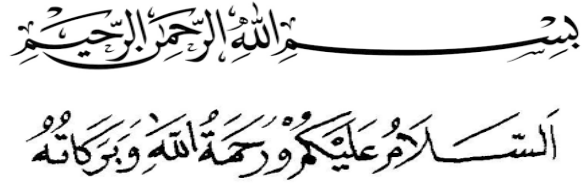 بِسْمِ اللّٰهِ الرَّحْمٰنِ الرَّحِيْمِ
اَلسَّلَامُ عَلَيْكُمْ وَرَحْمَةُ اللّٰهِ وَبَرَكَاتُهُ